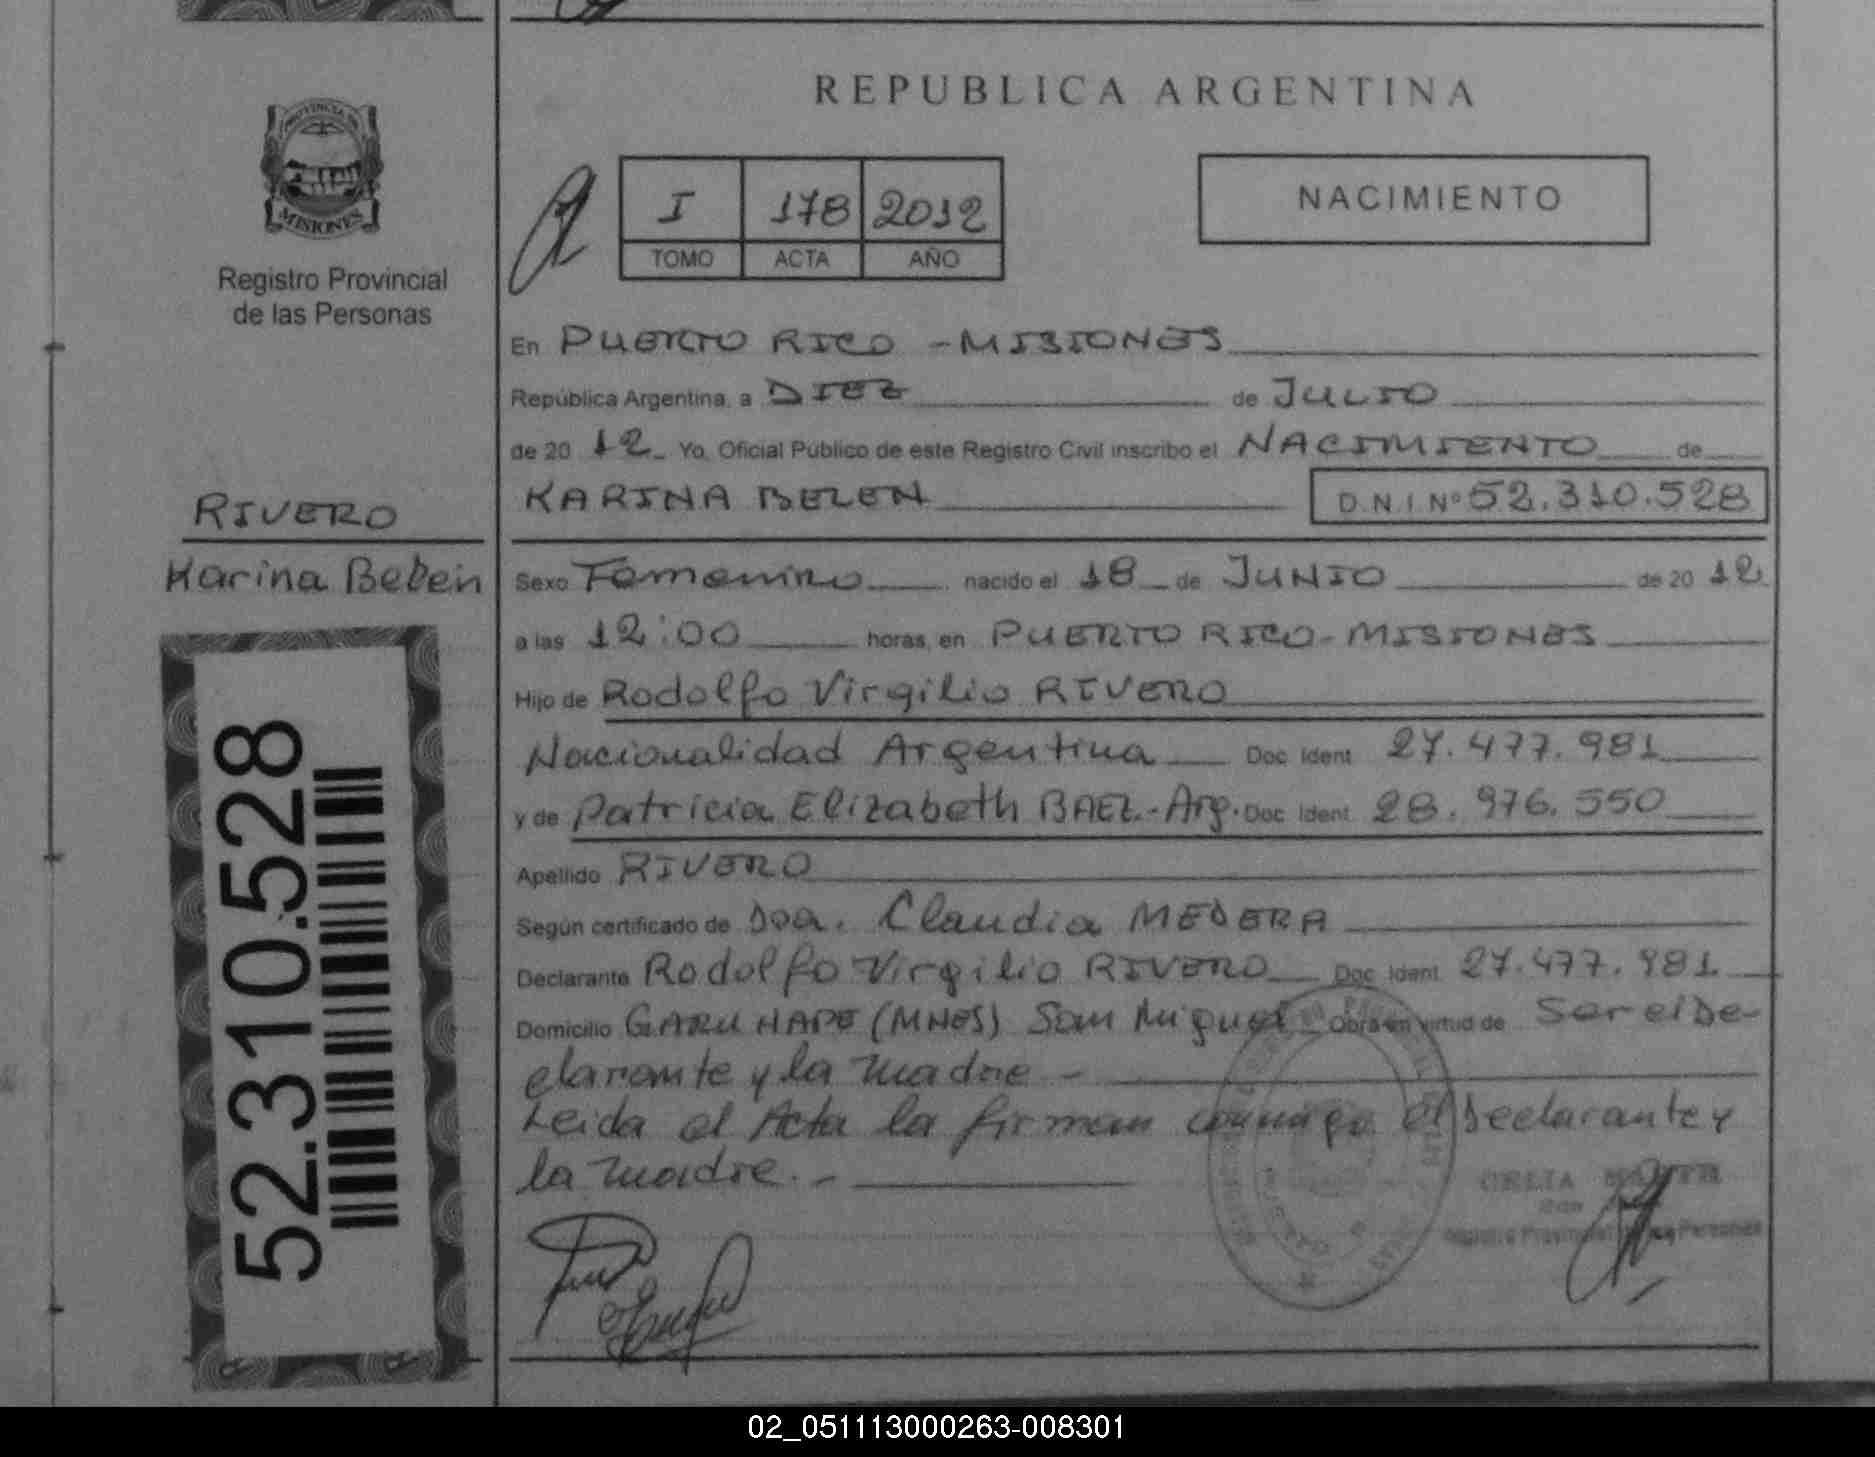 PROVINCIA DE
MISIONES
Registro Provincial
de las Personas
RIVERO
Karina Belen
52.310.528
REPUBLICA ARGENTINA
I 178 2012
TOMO ACTA AÑO
NACIMIENTO
En PUERTO RICO - MISIONES
República Argentina, a DIEZ de JULIO
de 20 12 Yo, Oficial Público de este Registro Civil inscribo el NACIMIENTO de
KARINA BELEN D.N.I. Nº 52.310.528
Sexo Femenino nacido el 18 de JUNIO de 20 12
a las 12:00 horas, en PUERTO RICO - MISIONES
Hijo de Rodolfo Virgilio RIVERO
Nacionalidad Argentina Doc. Ident. 27.477.981
y de Patricia Elizabeth BAEZ.-Arg. Doc. Ident. 28.976.550
Apellido RIVERO
Según certificado de Dra. Claudia MEDERA
Declarante Rodolfo Virgilio RIVERO Doc. Ident. 27.477.981
Domicilio GARUHAPE (MNES) San Miguel Obra en virtud de Ser el De-
clarante y la Madre -
Leida el Acta la firman conmigo el Declarante y
la Madre. -
CELIA
Registro Provincial de las Personas
02_051113000263-008301